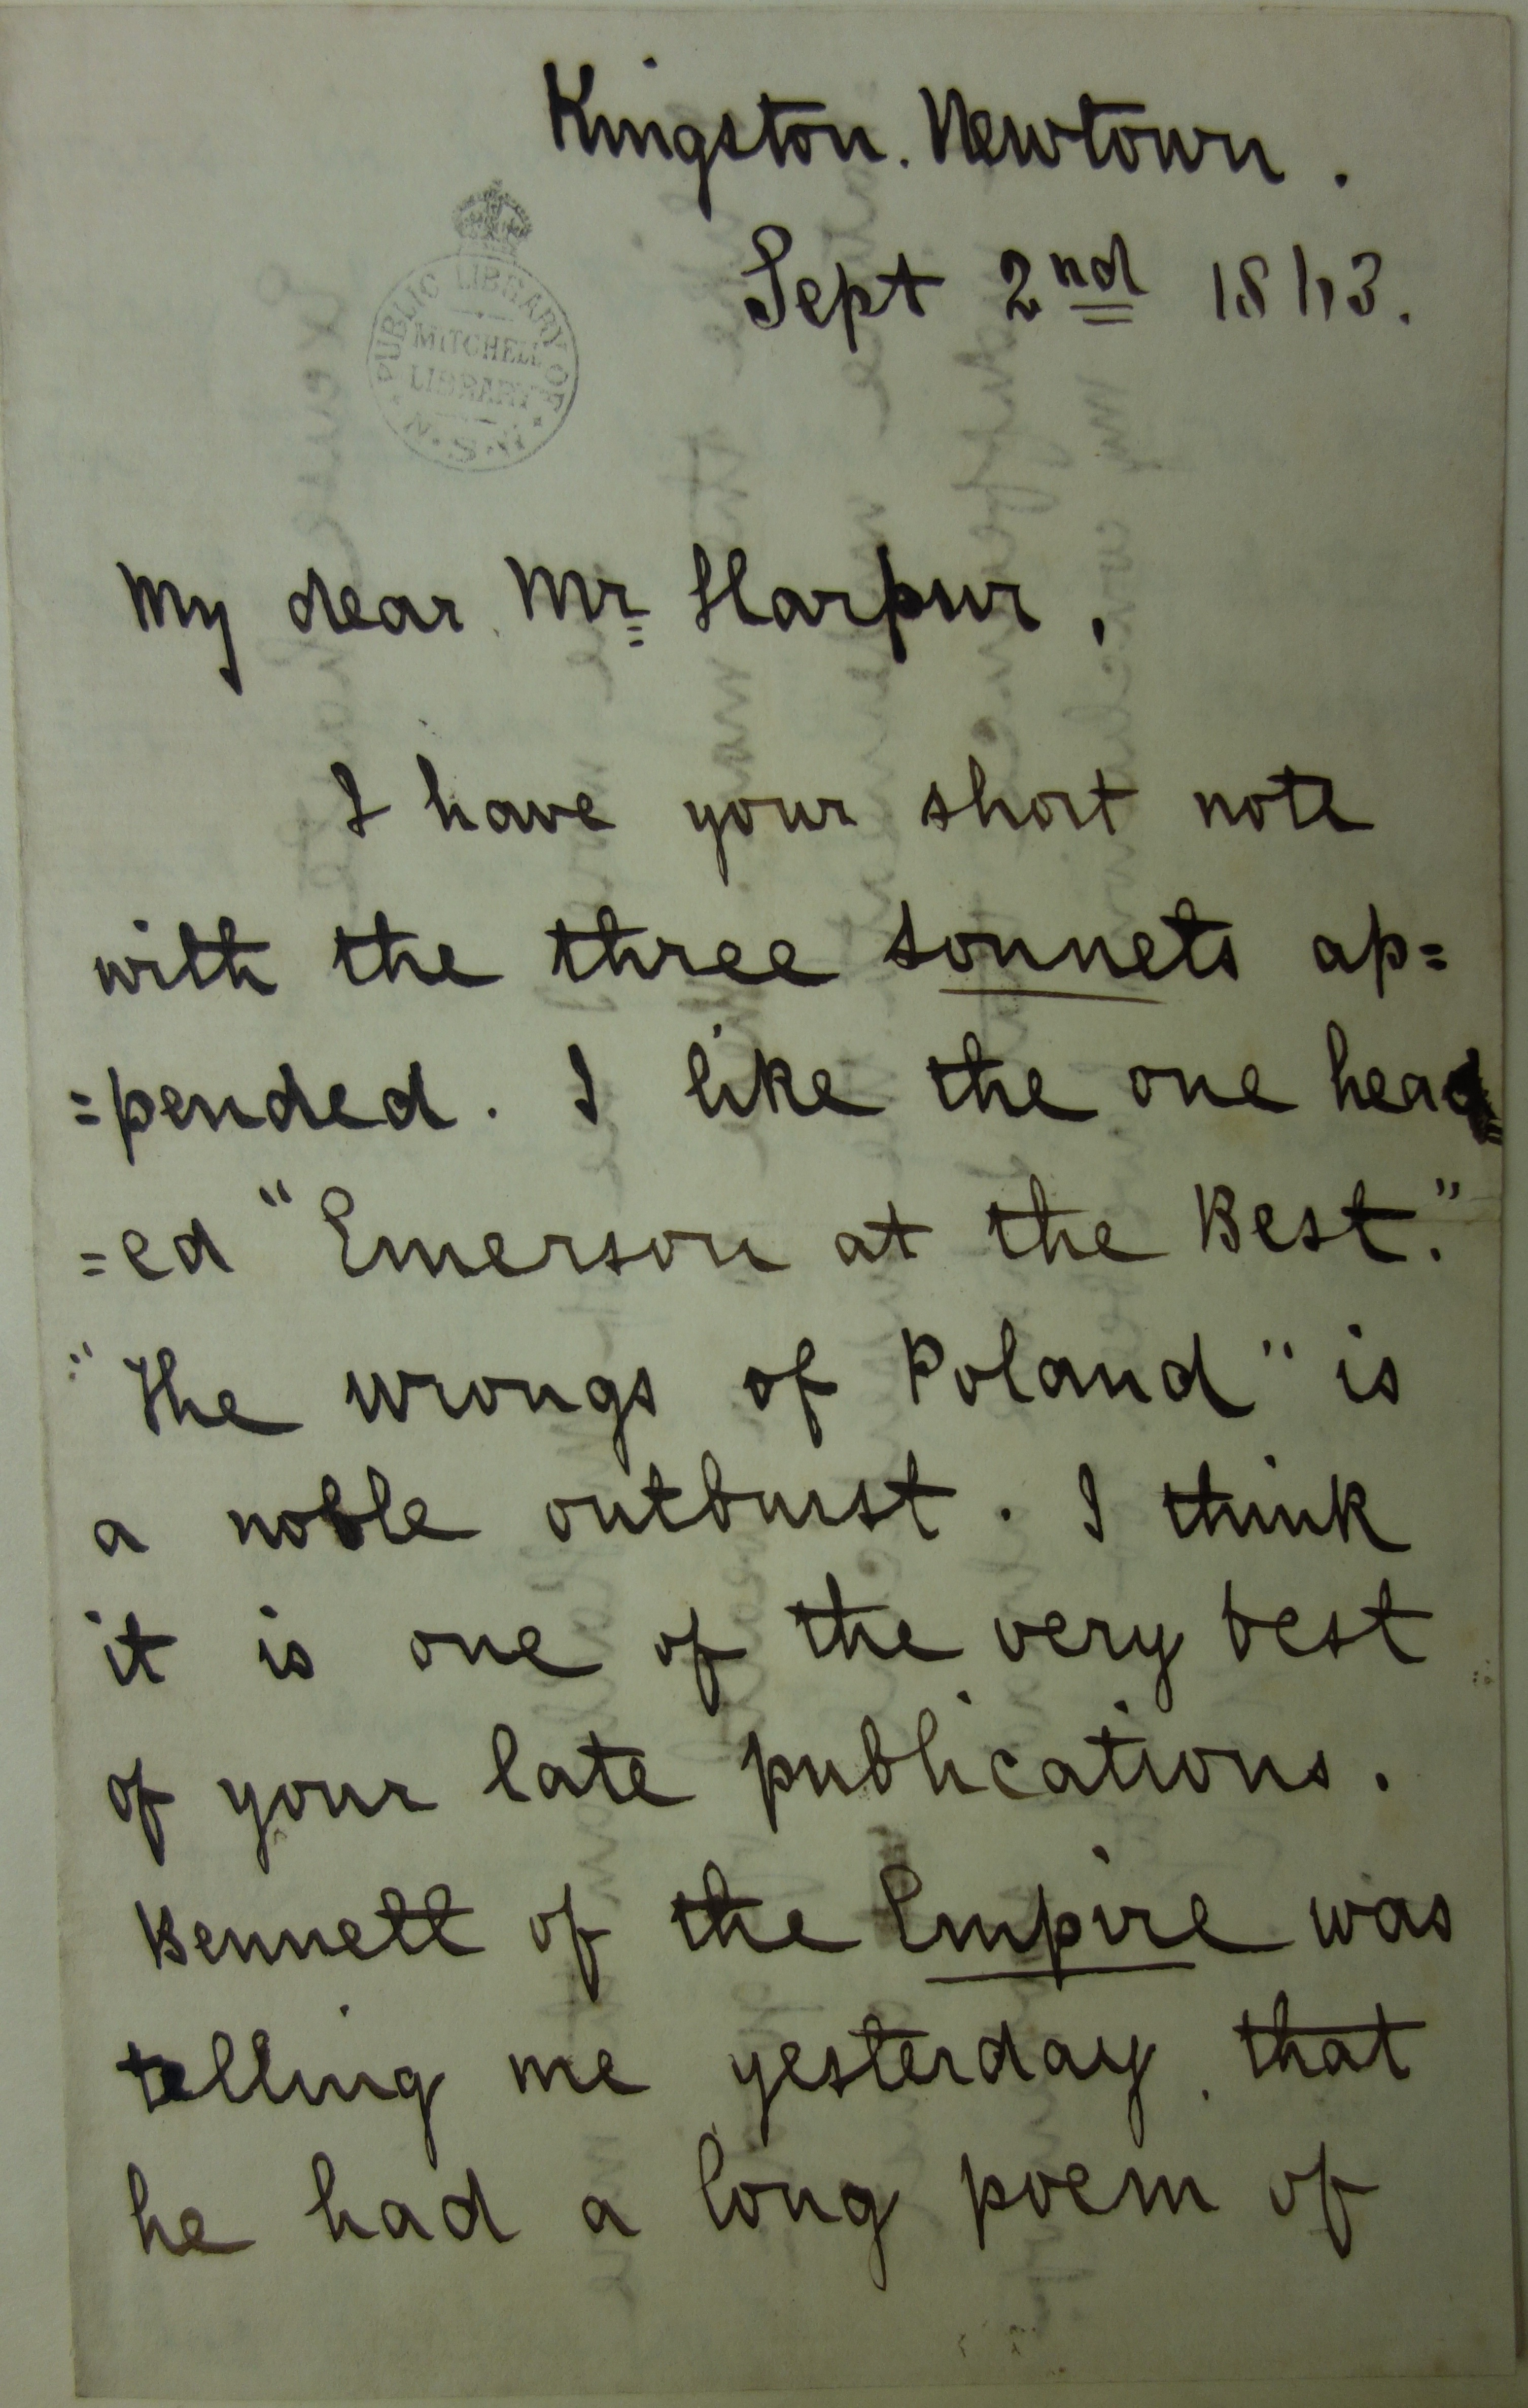 Kingston. Newtown.
Sept 2nd 1863.
PUBLIC LIBRARY OF
MITCHELL
LIBRARY
N.S.W.
My dear Mr Harpur,
I have your short note
with the three sonnets ap=
=pended. I like the one head
=ed "Emerson at the Best."
"The wrongs of Poland" is
a noble outburst. I think
it is one of the very best
of your late publications.
Bennett of the Empire was
telling me yesterday, that
he had a long poem of